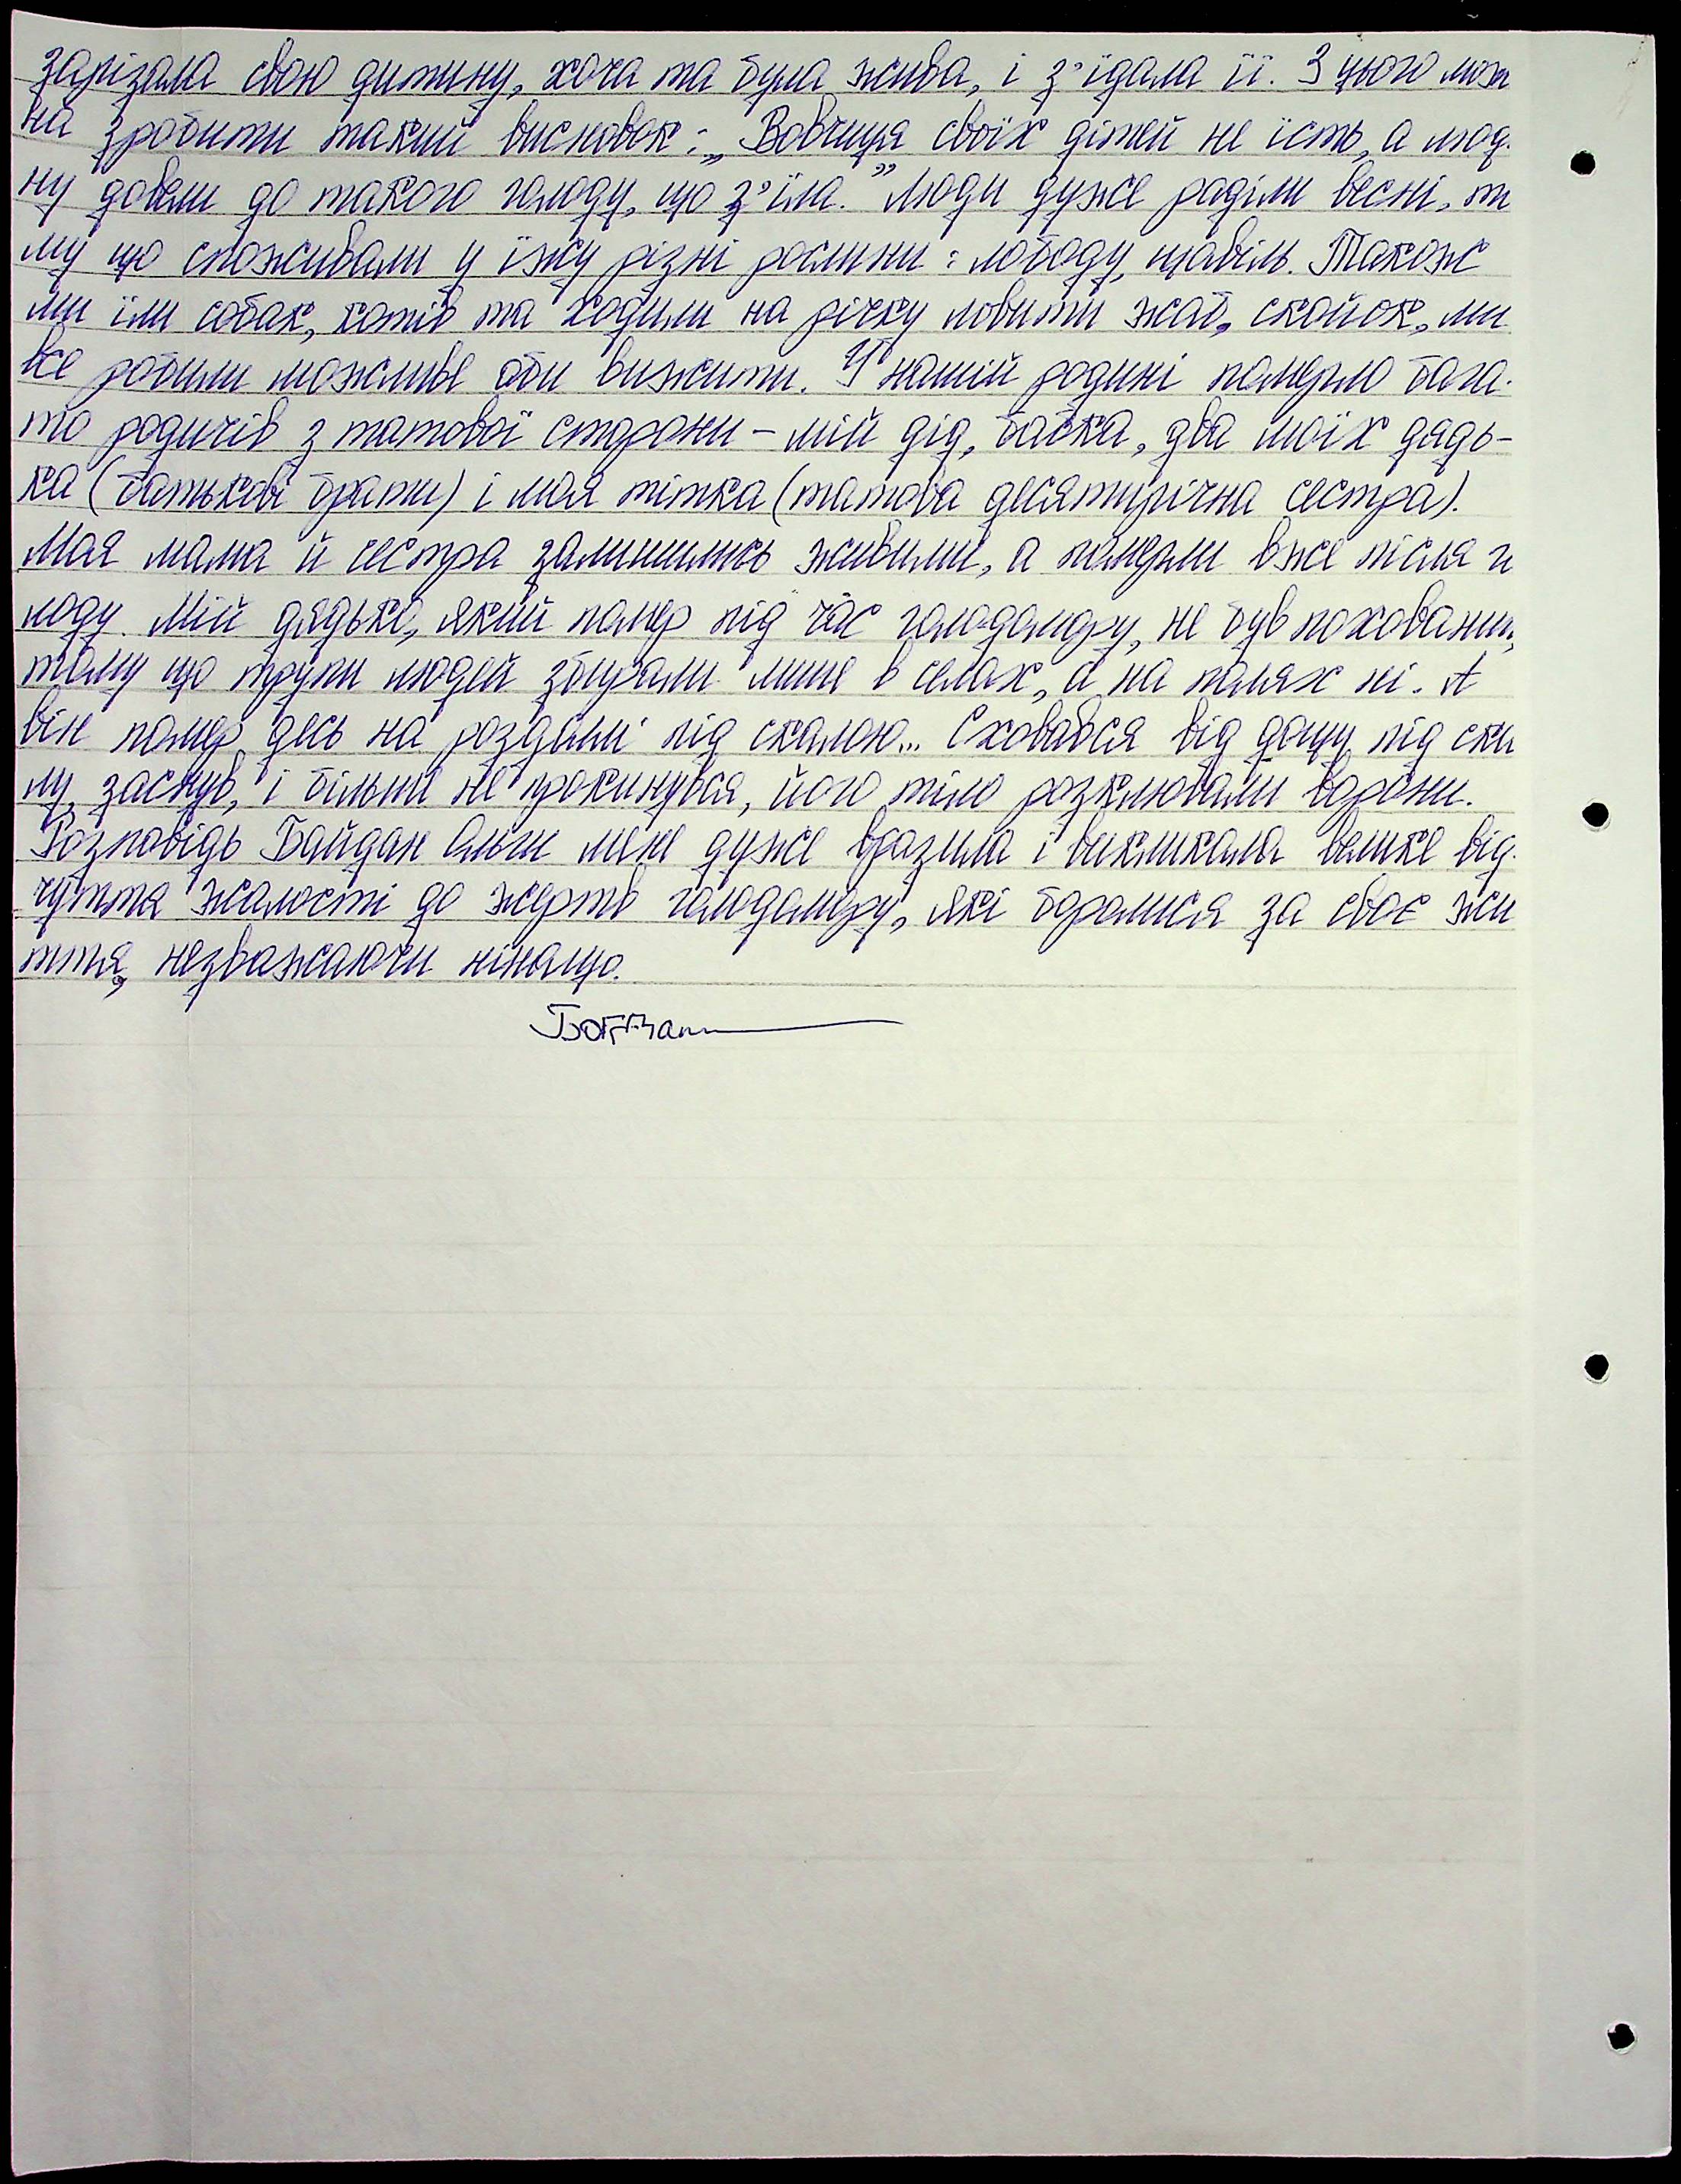 зарізала свою дитину, хоча та була жива, і з'їдала її. З цього мож
на зробити такий висновок: „Вовчиця своїх дітей не їсть, а люд-
ну довели до такого голоду, що з'їла." Люди дуже раділи весні, то
му що споживали у їжу різні рослини: лободу, щавіль. Також
ми їли собак, котів та ходили на річку ловити жаб, скойок, ми
все робили можливе аби вижити. У нашій родині померло бага-
то родичів з татової сторони – мій дід, бабка, два моїх дядь-
ка (батькові брати) і моя тітка (татова десятирічна сестра).
Моя мама й сестра залишились живими, а померли вже після го
лоду. Мій дядько, який помер під час голодомору, не був похований,
тому що трупи людей збирали лише в селах, а на полях ні. А
він помер десь на роздоллі під скалою... Сховався від дощу під ска
лу, заснув, і більше не прокинувся, його тіло розклювали ворони.
Розповідь Байдан Ольги мене дуже вразила і викликала велике від-
чуття жалості до жертв голодомору, які боролися за своє жи
ття, незважаючи нінащо.